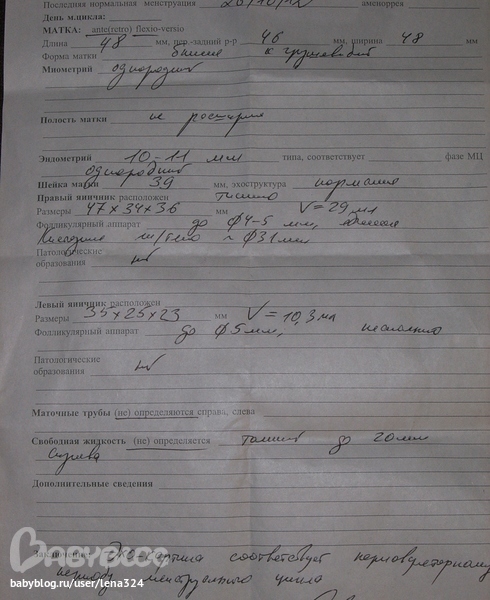 Последняя нормальная менструация 26/10/ аменоррея
День м.цикла:
МАТКА: ante(retro) flexio-versio
Длина 48 мм, пер.-задний р-р 46 мм, ширина 48 мм
Форма матки близка к грушевидной
Миометрий однородный
Полость матки не расширена
Эндометрий 10-11 мм типа, соответствует фазе МЦ
однородный
Шейка матки 39 мм, эхоструктура нормальная
Правый яичник расположен типично
Размеры 47 х 34 х 36 мм V = 29 мл
Фолликулярный аппарат до ф4-5 мм,
Кистозное ~ ф31мм
Патологические
образования нет
Левый яичник расположен
Размеры 35 х 25 х 23 мм V = 10,3 мл
Фолликулярный аппарат до ф5мм, несколько
Патологические
образования нет
Маточные трубы (не) определяются справа, слева
Свободная жидкость (не) определяется до 20мм
Дополнительные сведения
Заключение Эхо-картина соответствует
периоду менструального цикла
BABYBLOG
babyblog.ru/user/lena324